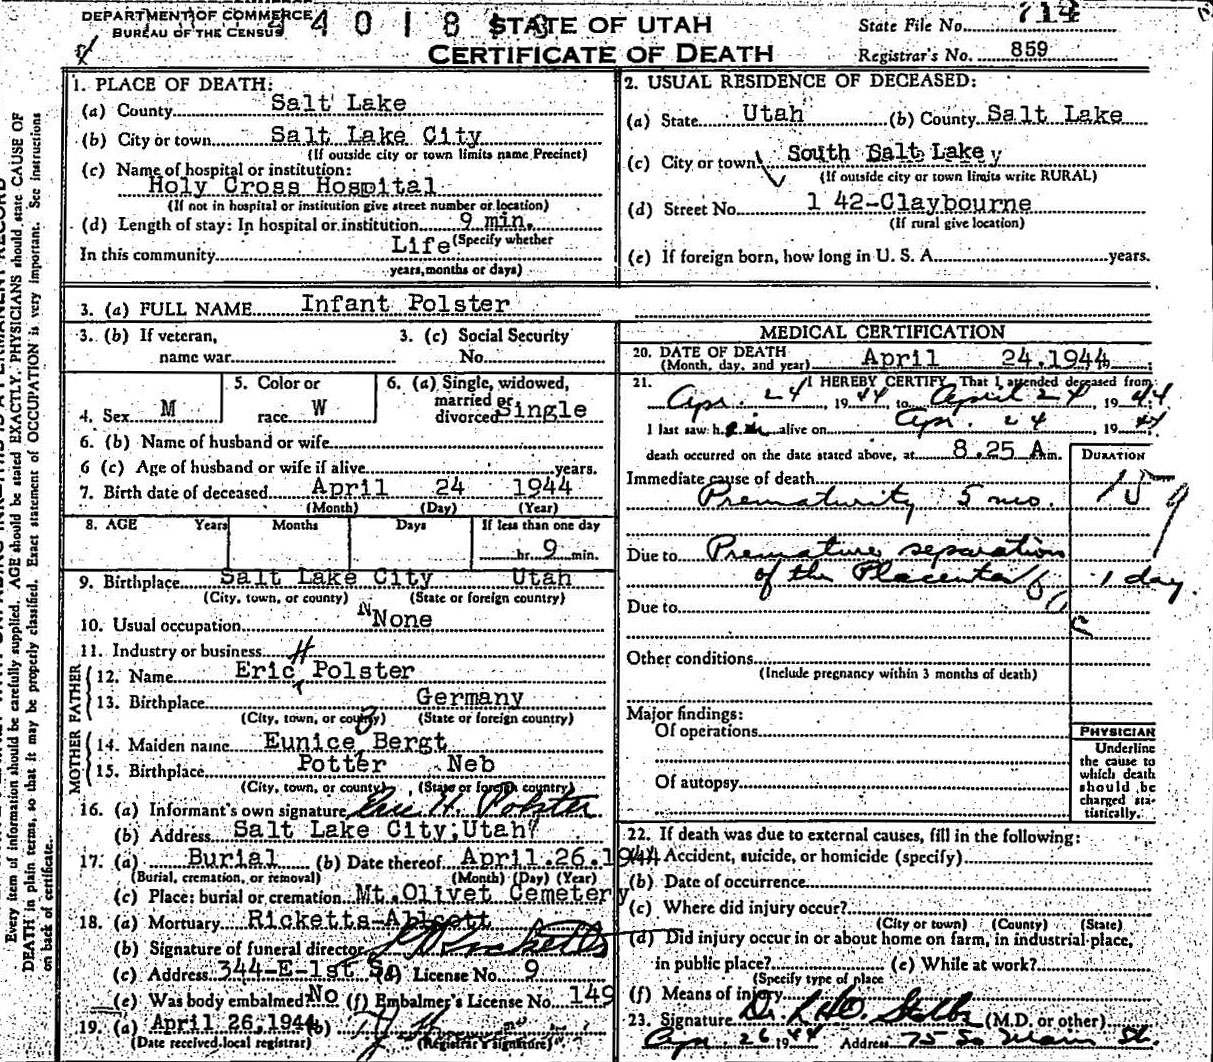 DEPARTMENT OF COMMERCE
BUREAU OF THE CENSUS
4 0 1 8
STATE OF UTAH
CERTIFICATE OF DEATH
State File No. 714
Registrar's No. 859
1. PLACE OF DEATH:
(a) County Salt Lake
(b) City or town Salt Lake City
(If outside city or town limits name Precinct)
(c) Name of hospital or institution:
Holy Cross Hospital
(If not in hospital or institution give street number or location)
(d) Length of stay: In hospital or institution 9 min.
In this community Life (Specify whether
years, months or days)
2. USUAL RESIDENCE OF DECEASED:
(a) State Utah (b) County Salt Lake
(c) City or town South Salt Lake
(If outside city or town limits write RURAL)
(d) Street No. 1 42-Claybourne
(If rural give location)
(e) If foreign born, how long in U. S. A. years.
3. (a) FULL NAME Infant Polster
3. (b) If veteran,
name war
3. (c) Social Security
No.
4. Sex M
5. Color or
race W
6. (a) Single, widowed,
married or
divorced Single
6. (b) Name of husband or wife
6 (c) Age of husband or wife if alive years.
7. Birth date of deceased April 24 1944
(Month) (Day) (Year)
8. AGE Years Months Days If less than one day
hr. 9 min.
9. Birthplace Salt Lake City Utah
(City, town, or county) (State or foreign country)
10. Usual occupation N None
11. Industry or business
FATHER
12. Name Eric H Polster
13. Birthplace Germany
(City, town, or county) (State or foreign country)
MOTHER
14. Maiden name Eunice B Bergt
15. Birthplace Potter Neb
(City, town, or county) (State or foreign country)
16. (a) Informant's own signature Eric H. Polster
(b) Address Salt Lake City, Utah
17. (a) Burial (b) Date thereof April.26.1944
(Burial, cremation, or removal) (Month) (Day) (Year)
(c) Place: burial or cremation Mt. Olivet Cemetery
18. (a) Mortuary Ricketts-Abbott
(b) Signature of funeral director Ricketts
(c) Address 344-E-1st So (d) License No. 9
(e) Was body embalmed? No (f) Embalmer's License No. 149
19. (a) April 26, 1944 (b)
(Date received local registrar) (Registrar's signature)
MEDICAL CERTIFICATION
20. DATE OF DEATH
(Month, day, and year) April 24.1944
21. I HEREBY CERTIFY, That I attended deceased from
Apr. 24, 1944 to April 24, 1944
I last saw him alive on Apr. 24, 1944
death occurred on the date stated above, at 8.25 A m.
DURATION
Immediate cause of death
Prematurity 5 mo.
Due to Premature separation
of the Placenta 1 day
Due to
Other conditions
(Include pregnancy within 3 months of death)
Major findings:
Of operations
Of autopsy
PHYSICIAN
Underline
the cause to
which death
should be
charged sta-
tistically.
22. If death was due to external causes, fill in the following:
Accident, suicide, or homicide (specify)
(b) Date of occurrence
(c) Where did injury occur?
(City or town) (County) (State)
(d) Did injury occur in or about home on farm, in industrial place,
in public place? (e) While at work?
(Specify type of place
(f) Means of injury
23. Signature Dr. (M.D. or other)
Apr 26 1944 Address 75 So Main St.
Every item of information should be carefully supplied. AGE should be stated EXACTLY. PHYSICIANS should state CAUSE OF
DEATH in plain terms, so that it may be properly classified. Exact statement of OCCUPATION is very important. See instructions
on back of certificate.